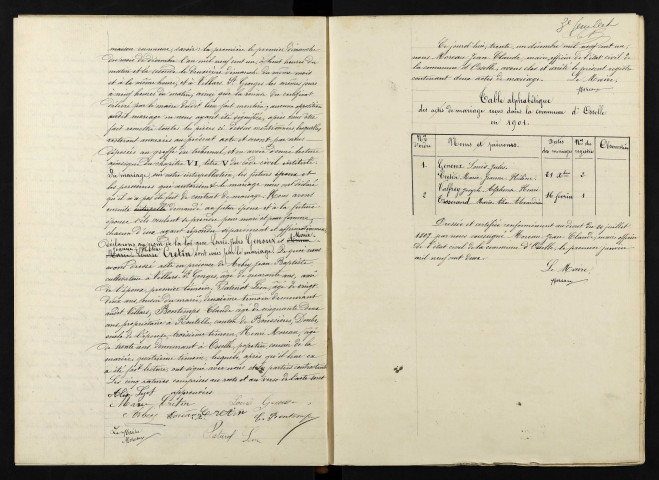 maison commune, savoir: la première le premier dimanche
du mois de décembre l'an mil neuf cent un, à huit heures du
matin et la seconde le deuxième dimanche du même mois
et à la même heure, et à Villars St Georges les mêmes jours
à neuf heures du matin, ainsi que le certificat
délivré par le maire dudit lieu fait mention; aucune opposition
audit mariage ne nous ayant été signifiée, après avoir
fait remettre toutes les pièces ci-dessus mentionnées lesquelles
resteront annexées au présent acte et
déposées au greffe du tribunal, et en avoir donné lecture
ainsi que du chapitre VI, titre V du code civil intitulé
du mariage, sur notre interpellation, les futurs époux et
les personnes qui autorisent le mariage nous ont déclaré
qu'il n'a pas été fait de contrat de mariage. Nous avons
ensuite demandé au futur époux et à la future
épouse, s'ils veulent se prendre pour mari et pour femme,
chacun d'eux ayant répondu séparément et affirmativement
déclarons au nom de la loi que Louis Jules Genoux et Marie
Jeanne Hélène Cretin sont unis par le mariage. De quoi nous
avons dressé acte en présence de Jean Baptiste
cultivateur à Villars St Georges, âgé de quarante ans, ami
de l'époux, premier témoin, Léon, âgé de vingt
deux ans, deuxième témoin demeurant
audit Villars, Bontemps Claude âgé de cinquante deux
ans propriétaire à Routelle, canton de Boussières, Doubs,
oncle de l'épouse, troisième témoin, Henri Moreau, âgé
de trente ans, demeurant à Osselle, cousin de la
mariée, quatrième témoin, lesquels, après qu'il leur en
a été fait lecture, ont signé avec nous et les parties contractantes
Les cinq ratures comprises au recto et au verso de l'acte sont
approuvées
Marie Cretin Louis Genoux
Moreau Cretin C. Bontemps
Le Maire
Moreau
Léon
Ce jourd'hui, trente un décembre mil neuf cent un,
nous Moreau Jean Claude, maire officier de l'état civil de
la commune d'Osselle, avons clos et arrêté le présent registre
contenant deux actes de mariage.
Le Maire,
Moreau
Table alphabétique
des actes de mariage reçus dans la commune d'Osselle
en 1901.
Nos d'ordre Noms et prénoms Dates des mariages Nos du registre Observations
1 Genoux Louis Jules
Cretin Marie Jeanne Hélène 21 Xbre 2
2 Valfrey Joseph Alphonse Henri
16 février 1
Dressée et certifiée conformément au décret du 20 juillet
1807 par nous soussigné Moreau Jean Claude, maire officier
de l'état civil de la commune d'Osselle, le premier janvier
mil neuf cent deux.
Le Maire,
Moreau